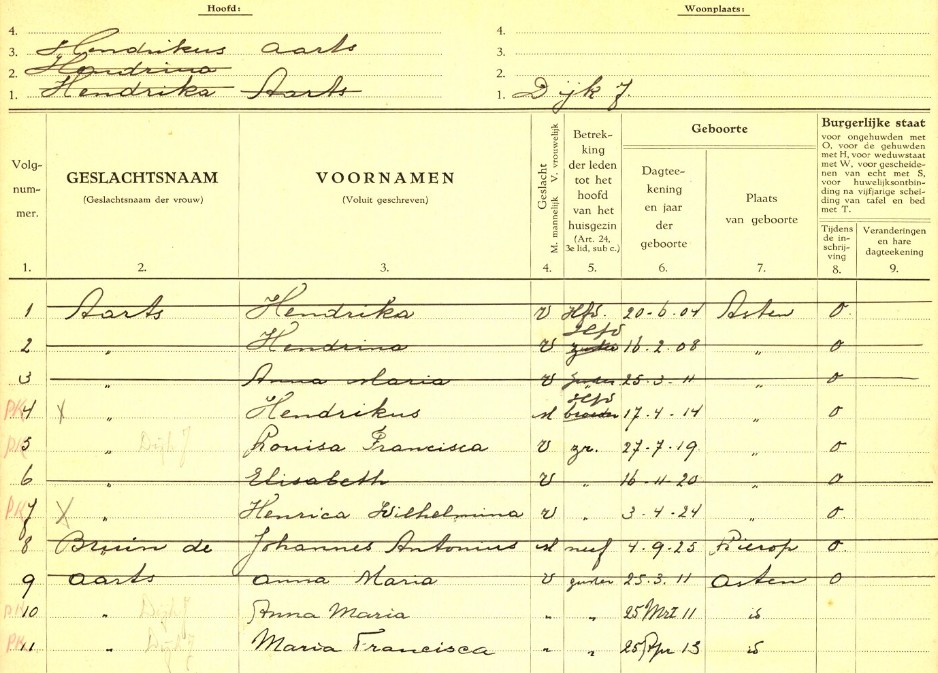 Hoofd: Woonplaats:
4. 4.
3. Hendrikus Aarts 3.
2. Hendrina 2.
1. Hendrika Aarts 1. Dijk 7.
Volg-num-mer. GESLACHTSNAAM (Geslachtsnaam der vrouw) VOORNAMEN (Voluit geschreven) Geslacht M. mannelijk V. vrouwelijk Betrek-king der leden tot het hoofd van het huisgezin (Art. 24, 3e lid, sub c.) Geboorte Dagtee-kening en jaar der geboorte Plaats van geboorte Burgerlijke staat
voor ongehuwden met
O, voor de gehuwden
met H, voor weduwstaat
met W, voor gescheide-
nen van echt met S,
voor huwelijksontbin-
ding na vijfjarige schei-
ding van tafel en bed
met T.
Tijdens de in-schrij-ving Veranderingen en hare dagteekening
1. 2. 3. 4. 5. 6. 7. 8. 9.
1 Aarts Hendrika v Hfd. 20-6-04 Asten O.
Hfd
2 " Hendrina v zuster 16-2-08 " O
3 " Anna Maria v zuster 25-3-11 " O
Hfd
PK 4 X " Hendrikus M broeder 17-4-14 " O
PK 5 " Dijk 7 Louisa Francisca v zr. 27-7-19 " O
6 " Elisabeth v " 16-11-20 " O
PK 7 X " Henrica Wilhelmina v " 3-4-24 " O.
8 Bruin de Johannes Antonius M neef 4-9-25 Lierop O.
9 Aarts Anna Maria v zuster 25.3.11 Asten O
PK 10 " Dijk 7 Anna Maria " " 25 Mrt 11 id
PK 11 " Dijk 7 Maria Francisca " " 25 Apr 13 id